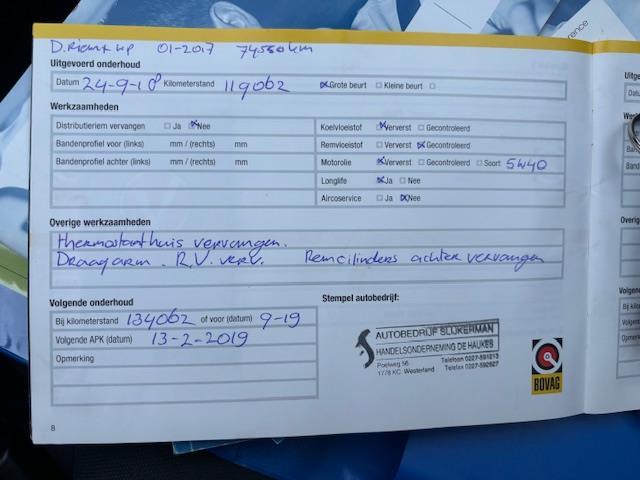 D.Riem + wp 01-2017 74550 km
Uitgevoerd onderhoud
Datum 24-9-18 Kilometerstand 119062 Grote beurt Kleine beurt
Werkzaamheden
Distributieriem vervangen Ja Nee
Bandenprofiel voor (links) mm / (rechts) mm
Bandenprofiel achter (links) mm / (rechts) mm
Koelvloeistof Ververst Gecontroleerd
Remvloeistof Ververst Gecontroleerd
Motorolie Ververst Gecontroleerd Soort 5W40
Longlife Ja Nee
Aircoservice Ja Nee
Overige werkzaamheden
thermostaathuis vervangen.
Draagarm. R.V. verv. Remcilinders achter vervangen
Volgende onderhoud
Bij kilometerstand 134062 of voor (datum) 9-19
Volgende APK (datum) 13-2-2019
Opmerking
Stempel autobedrijf:
AUTOBEDRIJF SLIJKERMAN
HANDELSONDERNEMING DE HAUKES
Poelweg 56 Telefoon 0227-591213
1778 KC Westerland Telefax 0227-592627
BOVAG
8
erence
Uitge
Datu
We
Ban
Ban
Overig
Volgen
Bij kilom
Volgen
Opmerk